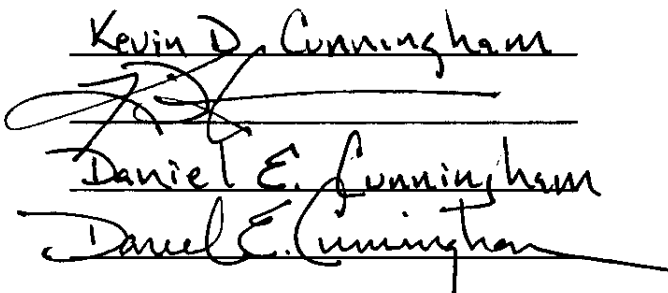 Kevin D. Cunningham
Daniel E. Cunningham
Daniel E. Cunningham